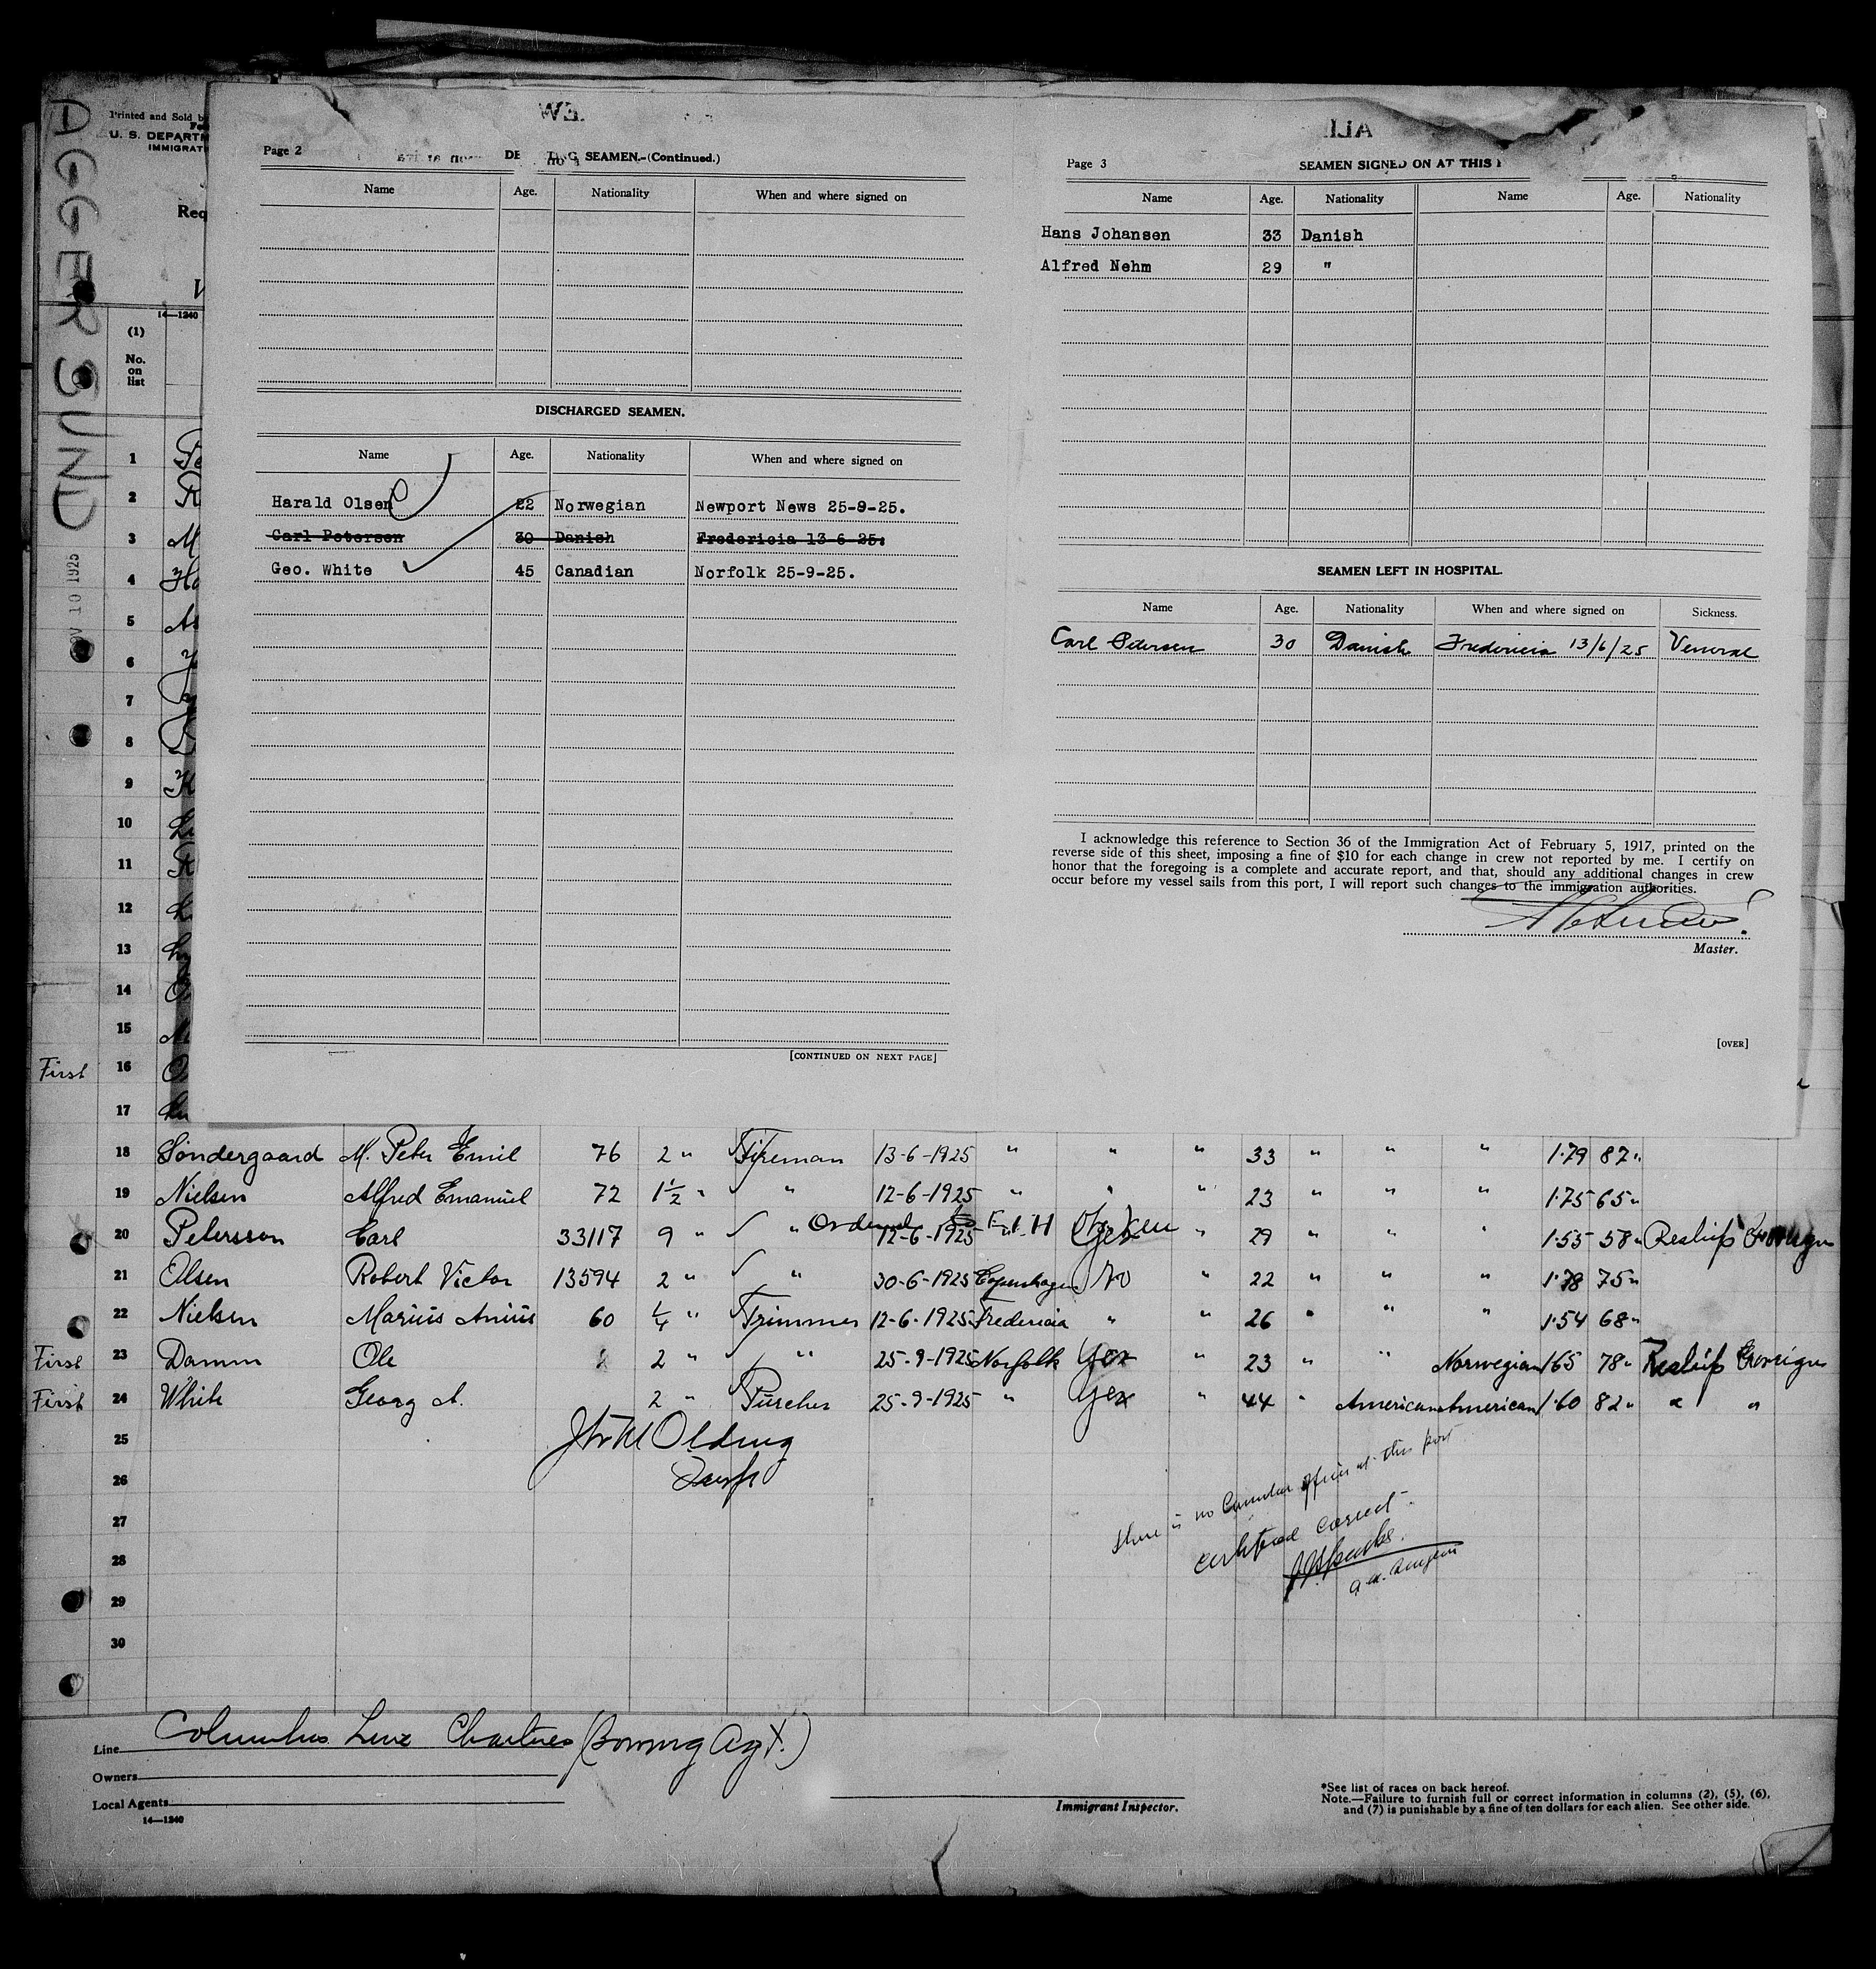 AGGERSUND
NOV 10 1925
Printed and Sold b
U. S. DEPARTM
IMMIGRAT
Req
14—1240
(1)
No.
on
list
Page 2
SEAMEN.—(Continued.)
Name Age. Nationality When and where signed on
DISCHARGED SEAMEN.
Name Age. Nationality When and where signed on
Harald Olsen 22 Norwegian Newport News 25-9-25.
Carl Petersen 30 Danish Fredericia 13-6-25.
Geo. White 45 Canadian Norfolk 25-9-25.
[CONTINUED ON NEXT PAGE]
Page 3
SEAMEN SIGNED ON AT THIS
Name Age. Nationality Name Age. Nationality
Hans Johansen 33 Danish
Alfred Nehm 29 "
SEAMEN LEFT IN HOSPITAL.
Name Age. Nationality When and where signed on Sickness.
Carl Petersen 30 Danish Fredericia 13/6/25 Veneral
I acknowledge this reference to Section 36 of the Immigration Act of February 5, 1917, printed on the
reverse side of this sheet, imposing a fine of $10 for each change in crew not reported by me. I certify on
honor that the foregoing is a complete and accurate report, and that, should any additional changes in crew
occur before my vessel sails from this port, I will report such changes to the immigration authorities.
Master.
[OVER]
1
2
3
4
5
6
7
8
9
10
11
12
13
14
15
First 16
17
18 Söndergaard M. Peter Emil 76 2 " Fireman 13-6-1925 " " " 33 " " " 1.79 87 "
19 Nielsen Alfred Emanuel 72 1½ " " 12-6-1925 " " " 23 " " " 1.75 65 "
20 Petersson Carl 33117 9 " " 12-6-1925 " Yes " 29 " " 1.55 58 " Reship Foreign
21 Olsen Robert Victor 13594 2 " " 30-6-1925 Copenhagen No " 22 " " " 1.78 75 "
22 Nielsen Marius Anius 60 ¼ " Trimmer 12-6-1925 Fredericia " " 26 " " " 1.54 68 "
First 23 Damm Ole 2 " " 25-9-1925 Norfolk Yes " 23 " " Norwegian 1.65 78 " Reship Foreign
First 24 White Georg A. 2 " 25-9-1925 " Yes " 44 " American American 1.60 82 " " "
25
26
27
28
29
30
Olding
Insp
there is no Consular office at this port
certified correct
Line Columbus Line (Bowring Agt.)
Owners
Local Agents
14—1240
Immigrant Inspector.
*See list of races on back hereof.
Note.—Failure to furnish full or correct information in columns (2), (5), (6),
and (7) is punishable by a fine of ten dollars for each alien. See other side.